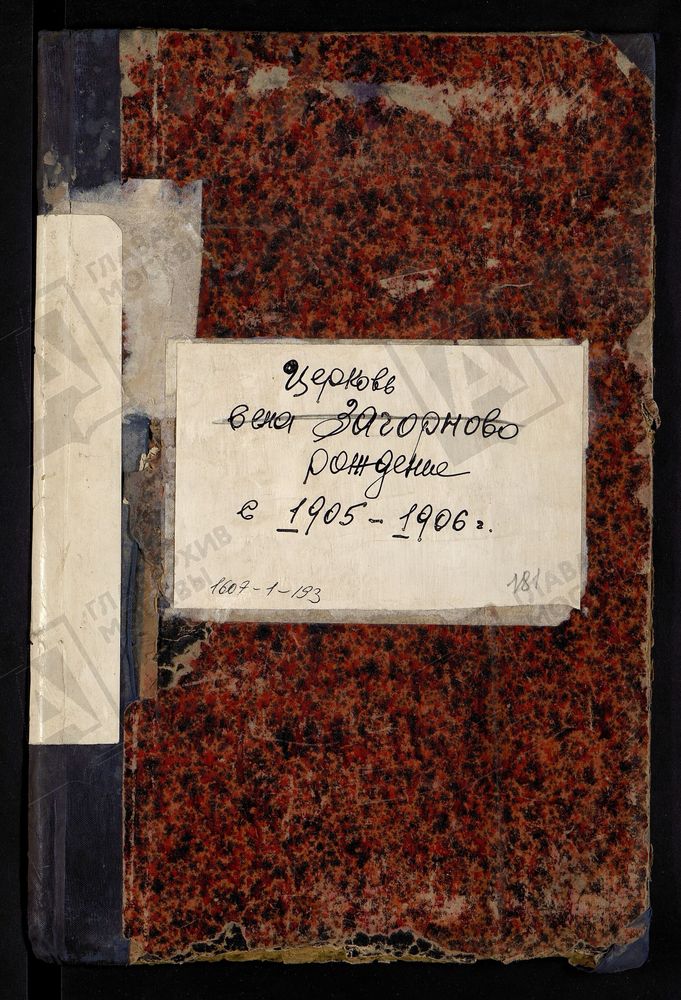 Церковь
села Загорново
рождение
с 1905 - 1906 г.
1607-1-193
181
ГЛАВАРХИВ
МОСКВЫ